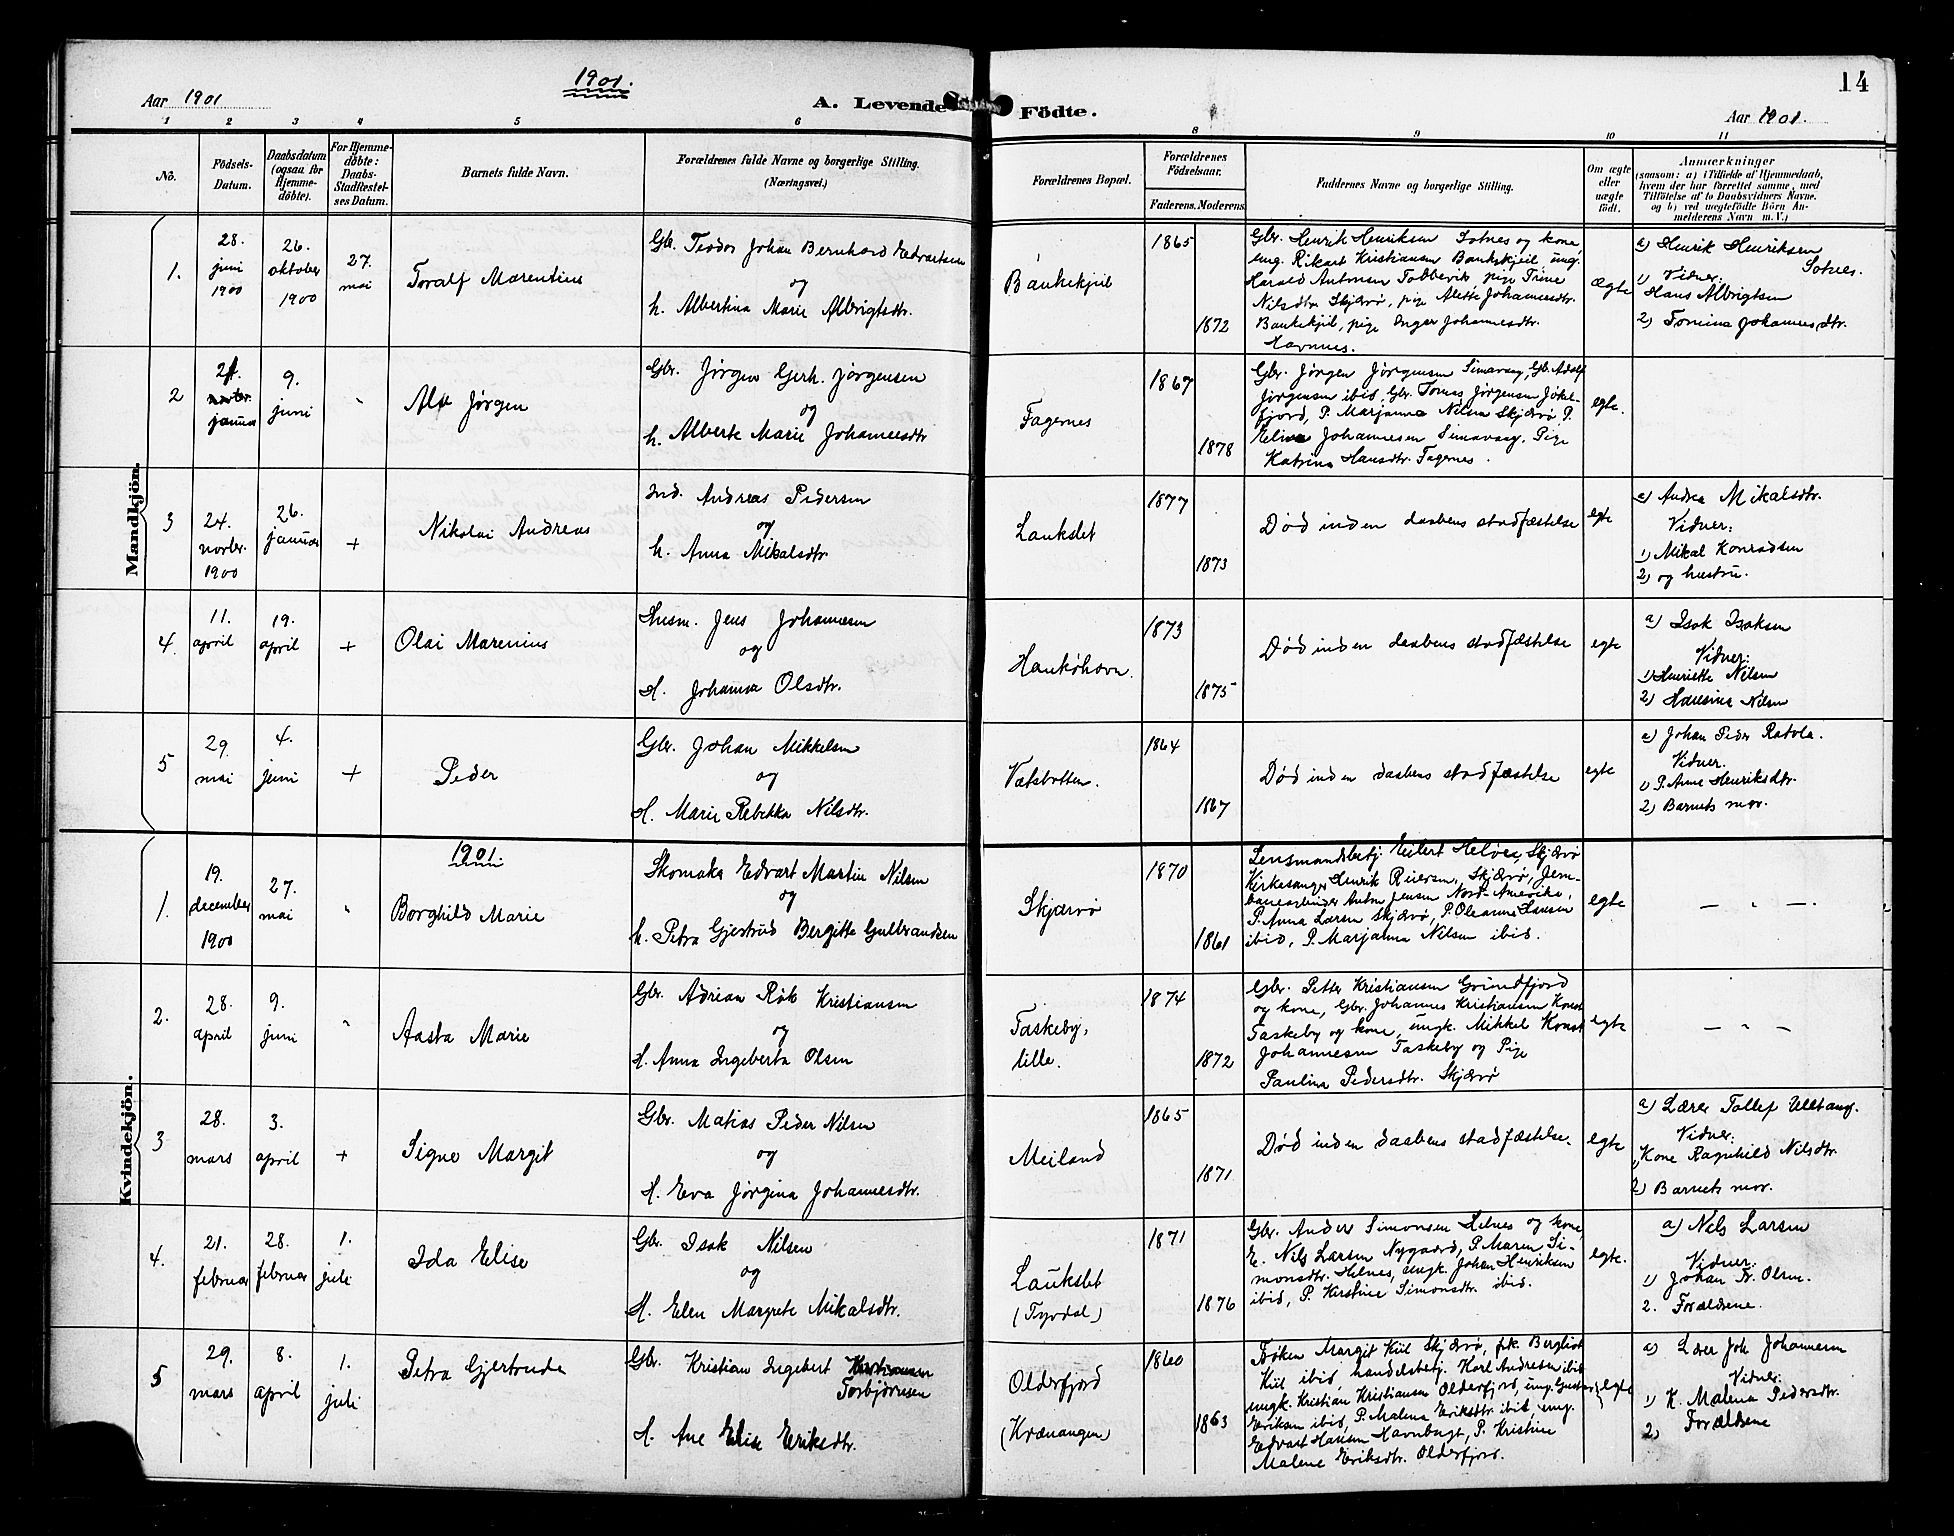 Aar 1901
1901.
A. Levende Födte.
14
Aar 1901.
1 2 3 4 5 6 8 9 10 11
No.
Födsels-
Datum.
Daabsdatum
(ogsaa for
Hjemme-
döbte).
For Hjemme-
döbte:
Daabs-
Stadfæstel-
ses Datum.
Barnets fulde Navn.
Forældrenes fulde Navne og borgerlige Stilling.
(Næringsvei.)
Forældrenes Bopæl.
Forældrenes
Födselsaar.
Faderens. Moderens.
Faddernes Navne og borgerlige Stilling.
Om ægte
eller
uægte
födt.
Anmærkninger
(saasom: a) i Tilfælde af Hjemmedaab,
hvem der har forrettet samme, med
Tilföielse af to Daabsvidners Navne.
og b) ved uægtefödte Börn An-
melderens Navn m. V.)
Mandkjön.
1.
28.
juni
1900
26.
oktober
1900
27.
mai
Toralf Marentius
Gbr. Teodor Johan Bernhard Edvartsen
og
h. Albertina Marie Albrigtsdtr.
Bankekjeil
1865
1872
Gbr. Henrik Henriksen Sotnes og kone
ung. Rikart Kristiansen Bankekjeil ung.
Harald Antonsen Tabbevik pige Trine
Nilsdtr. Skjærvø, pige Alette Johannesdtr.
Bankekjeil, pige Inger Johannesdtr.
Havnnes.
ægte
a) Henrik Henriksen
Sotnes.
1) Vidner:
Hans Albrigtsen
2) Tomina Johannesdtr.
2
21.
januar
9.
juni
"
Alf Jørgen
Gbr. Jørgen Gerh. Jørgensen
og
h. Alberte Marie Johannesdtr
Fagernes
1867
1878
Gbr. Jørgen Jørgensen Simavaag, Gbr. Adolf
Jørgensen ibid, Gbr. Tomas Jørgensen Jøkel-
fjord, P. Marjanna Nilsen Skjærvø P.
Eline Johannesen Simavaag. Pige
Katrina Hansdtr. Fagernes.
egte.
3
24.
novbr.
1900
26.
januar
+
Nikolai Andreas
Ind. Andreas Pedersen
og
h. Anna Mikalsdtr
Laukslet
1877
1873
Død inden daabens stadfæstelse
egte
a) Andrea Mikalsdtr.
Vidner:
1) Mikal Konradsen
2) og hustru.
4.
11.
april
19.
april
+
Olai Marenius
Husm. Jens Johannesen
og
H. Johanna Olsdtr.
Haukøhavn.
1873
1875
Død inden daabens stadfæstelse
egte
a) Isak Isaksen
Vidner:
1) Henriette Nilsen
2) Hansine Nilsen
5
29.
mai
4.
juni
+
Peder
Gbr. Johan Mikkelsen
og
H. Marie Rebekka Nilsdtr.
Vatsbotten.
1864
1867
Død inden daabens stadfæstelse
egte
a) Johan Peder Ratvla.
Vidner.
1) P. Anne Henriksdtr.
2) Barnets mor.
Kvindekjön.
1901.
1.
19.
december
1900
27.
mai
"
Borghild Marie
Skomaker Edvart Martin Nilsen
og
h. Petra Gjertrud Bergitte Gulbrandsen
Skjærvø
1870
1861
Lensmandsbetj. Eilert Heløe, Skjærvø
Kirkesanger Henrik Reiersen, Skjærvø, Jern-
banearbeider Anton Jensen Nord-Amerika,
P. Anna Larsen Skjærvø, P. Oleanna Hansen
ibid, P. Marjanna Nilsen ibid.
egte
— " —.
2.
28.
april
9.
juni
"
Aasta Marie
Gbr. Adrian Røk Kristiansen
og
H. Anna Ingeberta Olsen
Taskeby,
lille.
1874
1872
Gbr. Petter Kristiansen Grundfjord
og kone, Gbr. Johannes Kristiansen Konst
Taskeby og kone, ungk. Mikkel Konst
Johannesen Taskeby og Pige
Paulina Pedersdtr. Skjærvø
egte
— " —
3
28.
mars
3.
april
+
Signe Margit
Gbr. Matias Peder Nilsen
og
H. Eva Jørgina Johannesdtr.
Meiland
1865
1871
Død inden daabens stadfæstelse.
egte
a) Lærer Tollef Ulltang.
Vidner:
1) Kone Ragnhild Nilsdtr.
2) Barnets mor.
4.
21.
februar
28.
februar
1.
juli
Ida Elise
Gbr. Isak Nilsen
og
H. Elen Margrete Mikalsdtr.
Laukslet
(Tyvdal)
1871
1876
Gbr. Anders Simonsen Helnes og kone,
E. Nils Larsen Nygaard, P. Maren Si-
monsdtr. Helnes, ungk. Johan Henriksen
ibid, P. Kirstine Simonsdtr. ibid.
egte.
a) Nels Larsen
Vidner:
1) Johan Fr. Olsen.
2. Forældrene.
5
29.
mars
8.
april
1.
juli
Petra Gjertrude
Gbr. Kristian Ingebert Kristiansen
Torbjørnsen
H. Ane Elise Eriksdtr.
Olderfjord
(Kvænangen)
1860
1863
Frøken Margit Kiil Skjærvø, frk. Bergliot
Kiil ibid, handelsbetj. Karl Andresen ibid
ungk. Kristian Kristiansen Olderfjord, ung. Gustav
Eriksen ibid, P. Malena Eriksdtr. ibid, ung.
Edvart Hansen Havnbugt, P. Kristine
Malene Eriksdtr. Olderfjord.
egte
a) Lærer Joh. Johannesen
Vidner:
1) K. Malena Pedersdtr.
2) Forældrene